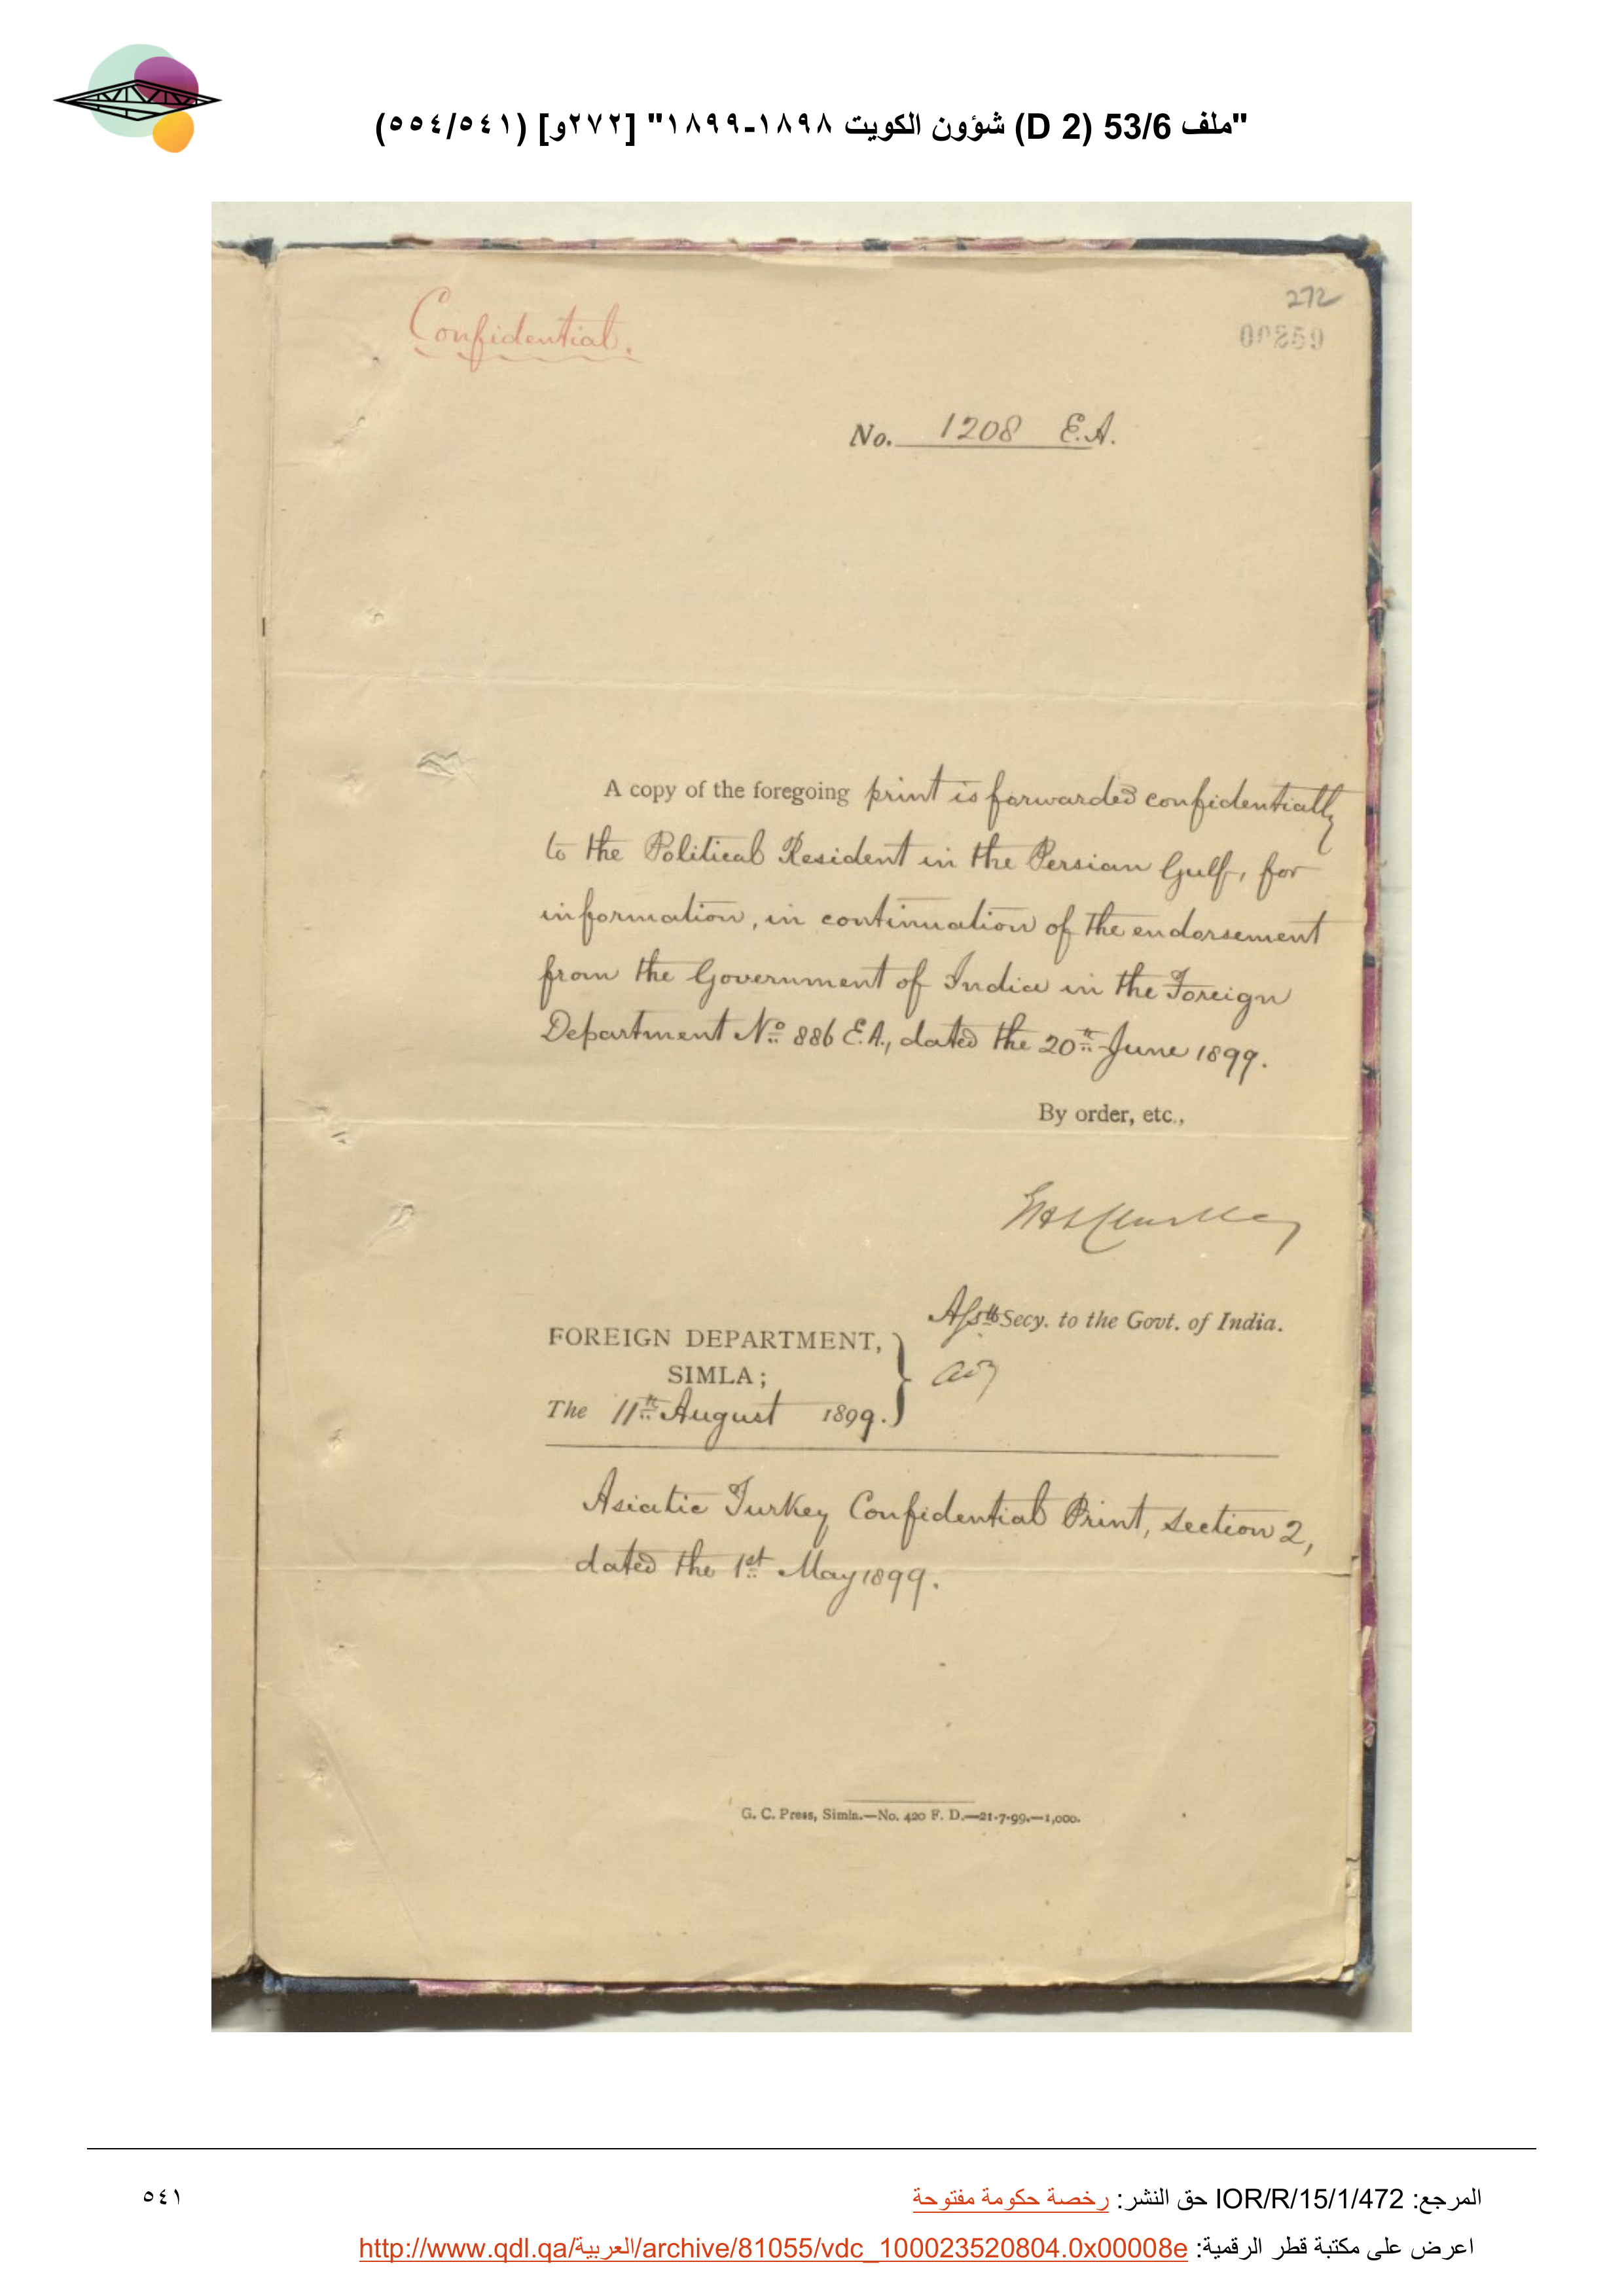 "ملف 53/6 (D 2) شؤون الكويت ١٨٩٨-١٨٩٩" [٢٧٢و] (٥٥٤/٥٤١)
Confidential.
272
00259
No. 1208 E.A.
A copy of the foregoing print is forwarded confidentially
to the Political Resident in the Persian Gulf, for
information, in continuation of the endorsement
from the Government of India in the Foreign
Department No. 886 E.A., dated the 20th June 1899.
By order, etc.,
Asstt Secy. to the Govt. of India.
FOREIGN DEPARTMENT,
SIMLA;
The 11th August 1899.
Asiatic Turkey Confidential Print, section 2,
dated the 1st May 1899.
G. C. Press, Simla.—No. 420 F. D.—21-7-99.—1,000.
المرجع: IOR/R/15/1/472 حق النشر: رخصة حكومة مفتوحة
٥٤١
اعرض على مكتبة قطر الرقمية: http://www.qdl.qa/العربية/archive/81055/vdc_100023520804.0x00008e